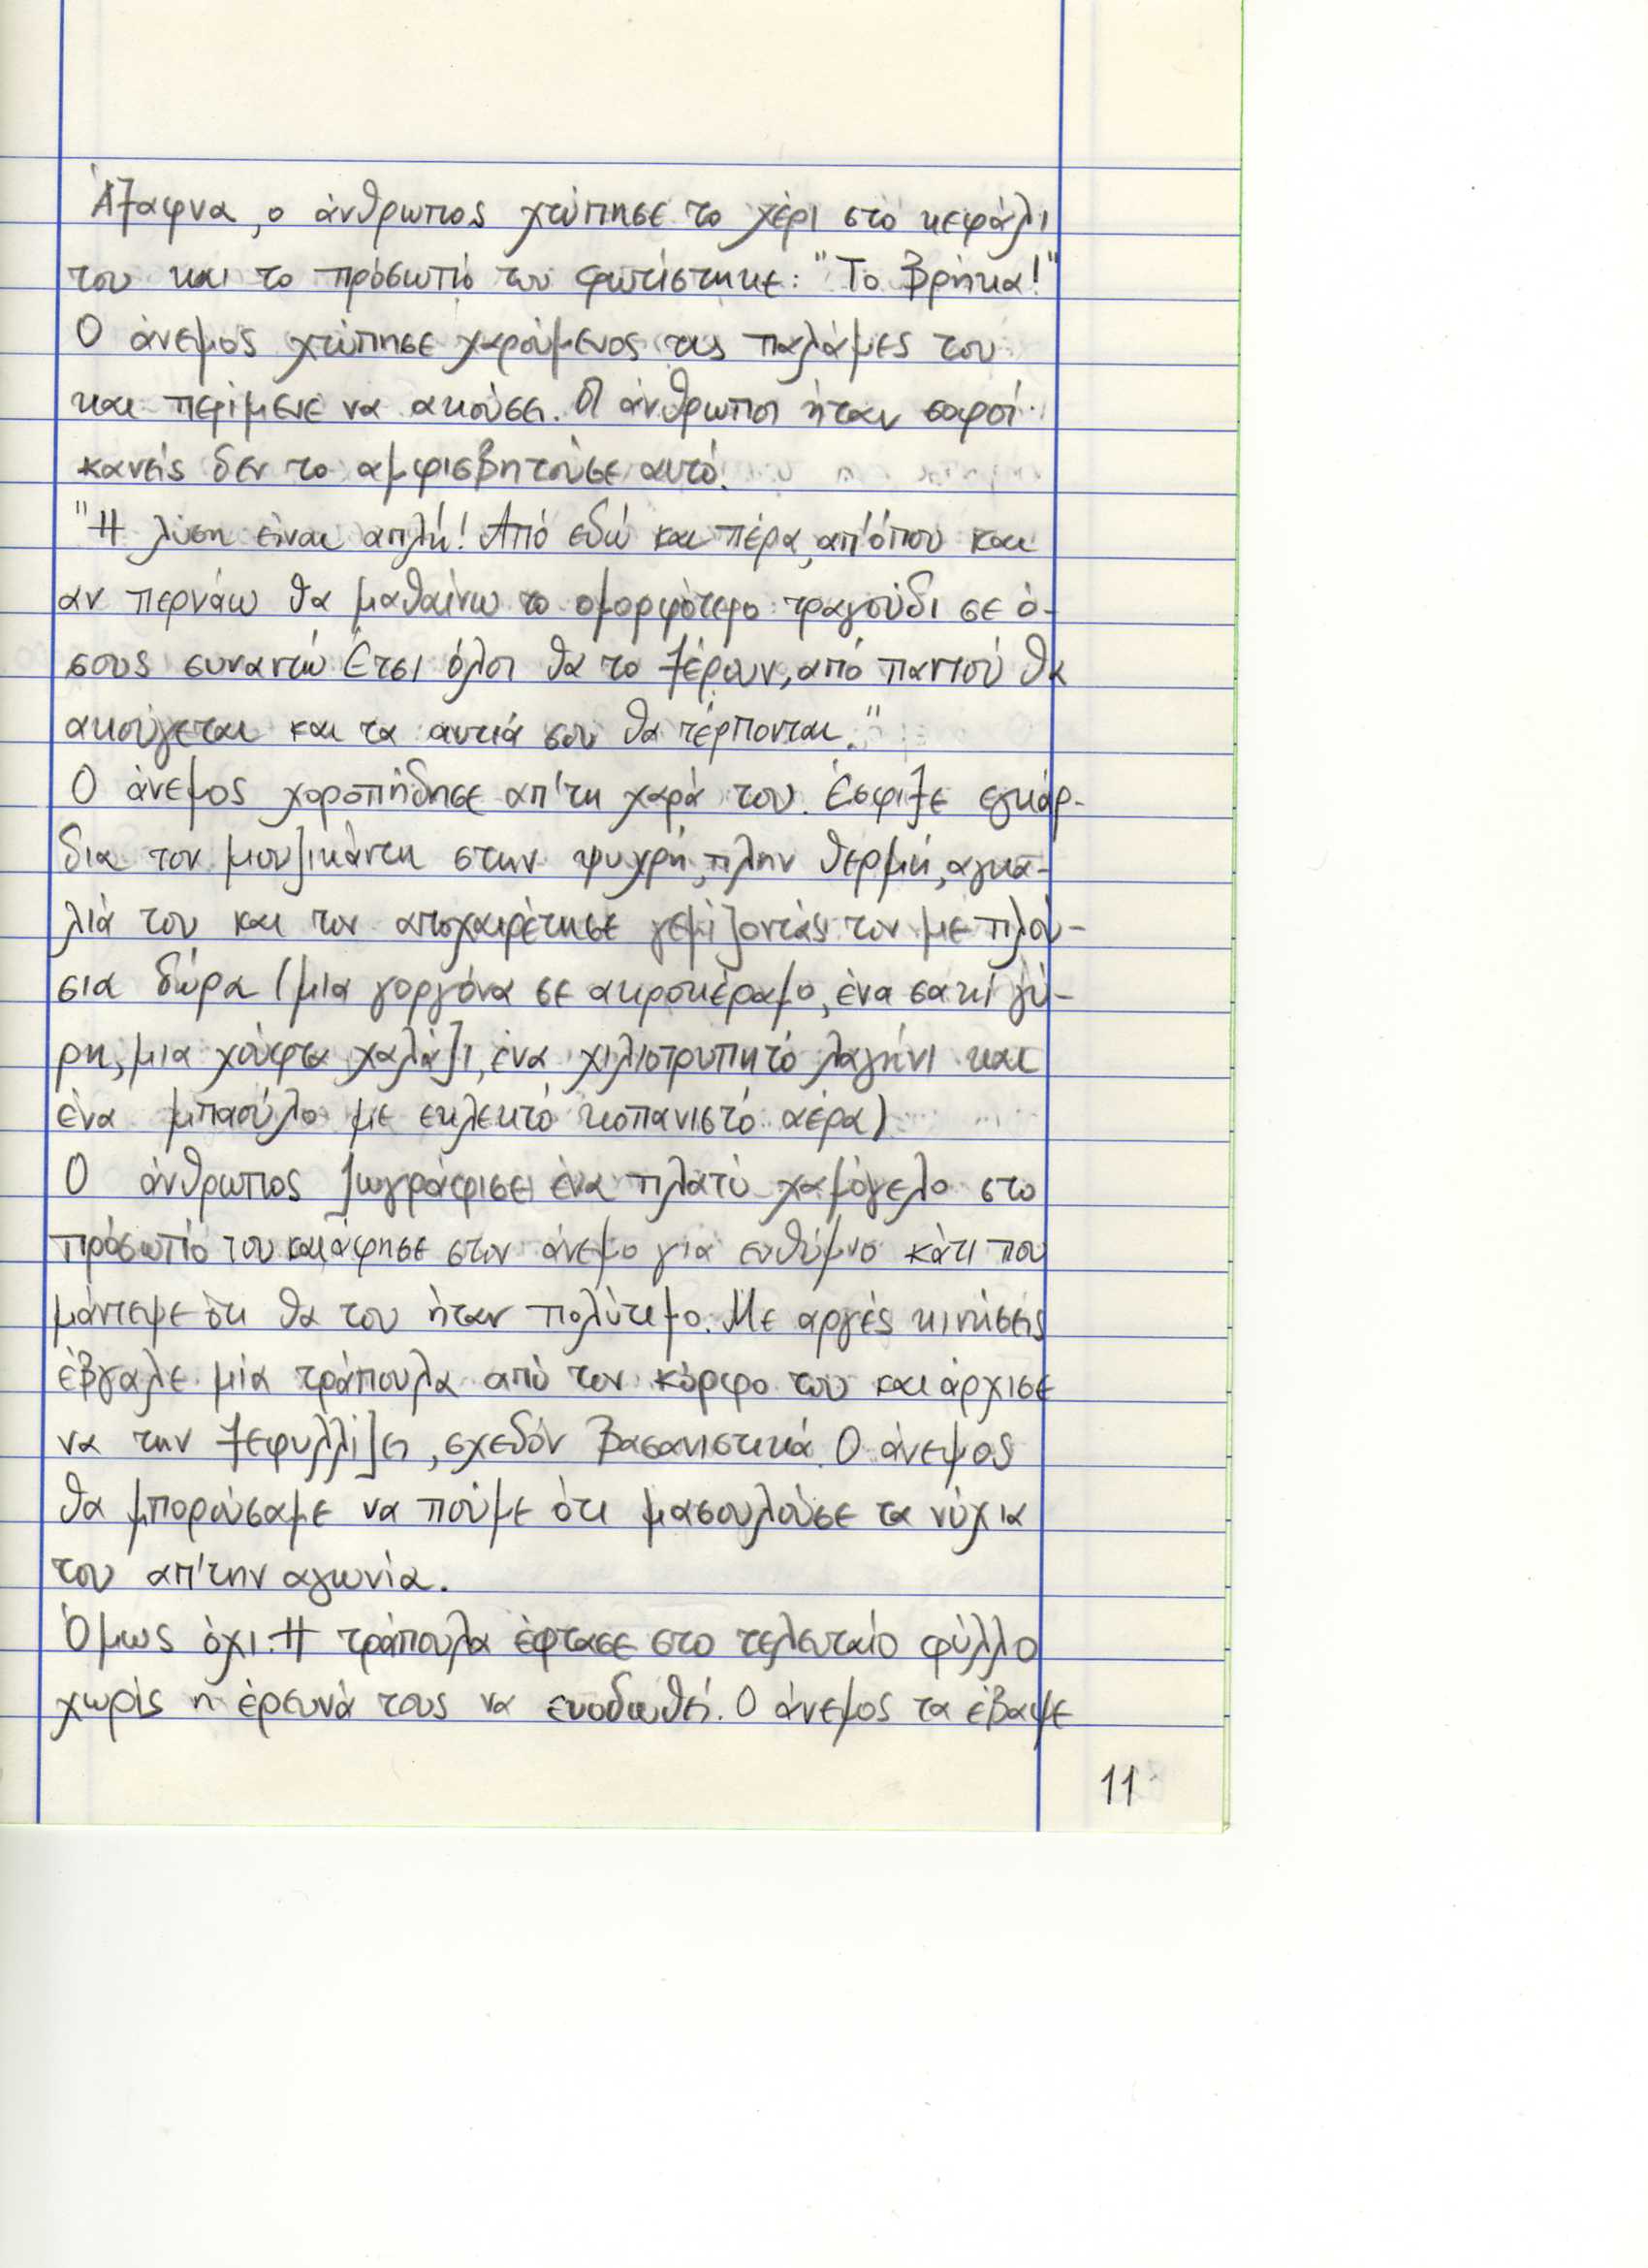 Άξαφνα, ο άνθρωπος χτύπησε το χέρι στο κεφάλι
του και το πρόσωπό του φωτίστηκε: "Το βρήκα!"
Ο άνεμος χτύπησε χαρούμενος τις παλάμες του
και περίμενε να ακούσει. Οι άνθρωποι ήταν σοφοί·
κανείς δεν το αμφισβητούσε αυτό.
"Η λύση είναι απλή! Από εδώ και πέρα, απ'όπου και
αν περνάω θα μαθαίνω το ομορφότερο τραγούδι σε ό-
σους συναντώ. Έτσι όλοι θα το ξέρουν, από παντού θα
ακούγεται και τα αυτιά σου θα τέρπονται."
Ο άνεμος χοροπήδησε απ'τη χαρά του. Έσφιξε εγκάρ-
δια τον μουζικάντη στην ψυχρή, πλην θερμή, αγκα-
λιά του και τον αποχαιρέτησε γεμίζοντάς τον με πλού-
σια δώρα (μια γοργόνα σε ακροκέραμο, ένα σακί γύ-
ρη, μια χούφτα χαλάζι, ένα χιλιοτρυπητό λαγήνι και
ένα μπαούλο με εκλεκτό κοπανιστό αέρα)
Ο άνθρωπος ζωγράφισε ένα πλατύ χαμόγελο στο
πρόσωπό του και άφησε στον άνεμο για ενθύμιο κάτι που
μάντεψε ότι θα του ήταν πολύτιμο. Με αργές κινήσεις
έβγαλε μία τράπουλα από τον κόρφο του και άρχισε
να την ξεφυλλίζει, σχεδόν βασανιστικά. Ο άνεμος
θα μπορούσαμε να πούμε ότι μασουλούσε τα νύχια
του απ'την αγωνία.
Όμως όχι. Η τράπουλα έφτασε στο τελευταίο φύλλο
χωρίς η έρευνά τους να ευοδωθεί. Ο άνεμος τα έβαψε
11